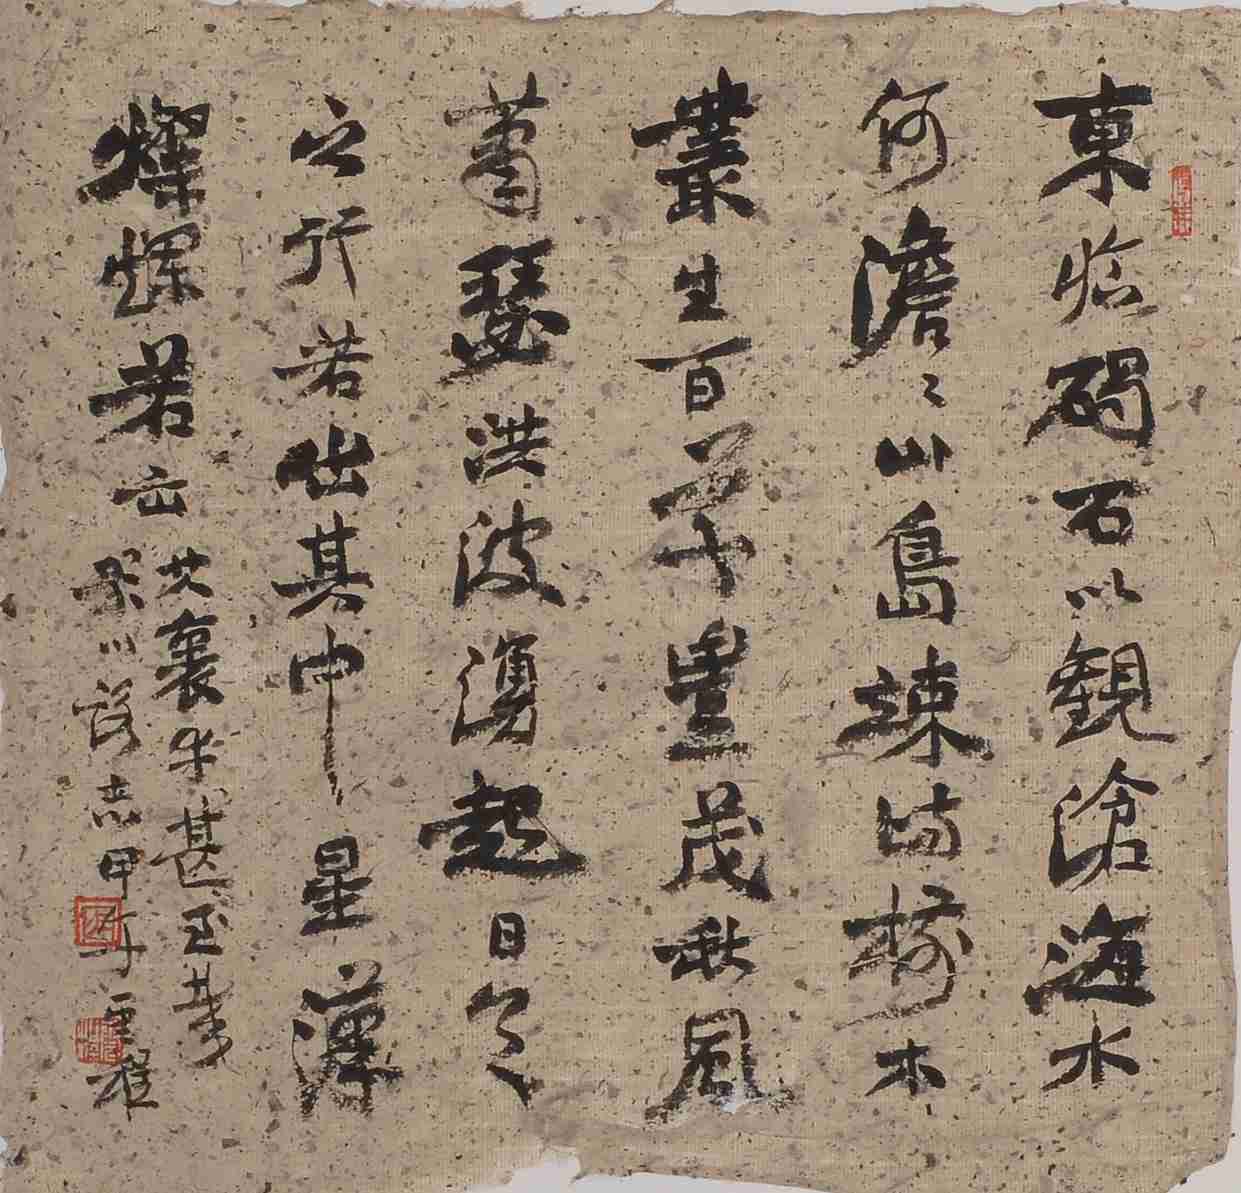 東臨碣石以觀滄海水
何澹々山島竦峙樹木
叢生百草豐茂秋風
蕭瑟洪波湧起日月
之行若出其中星漢
燦爛若出
其裏幸甚至哉
歌以詠志甲午